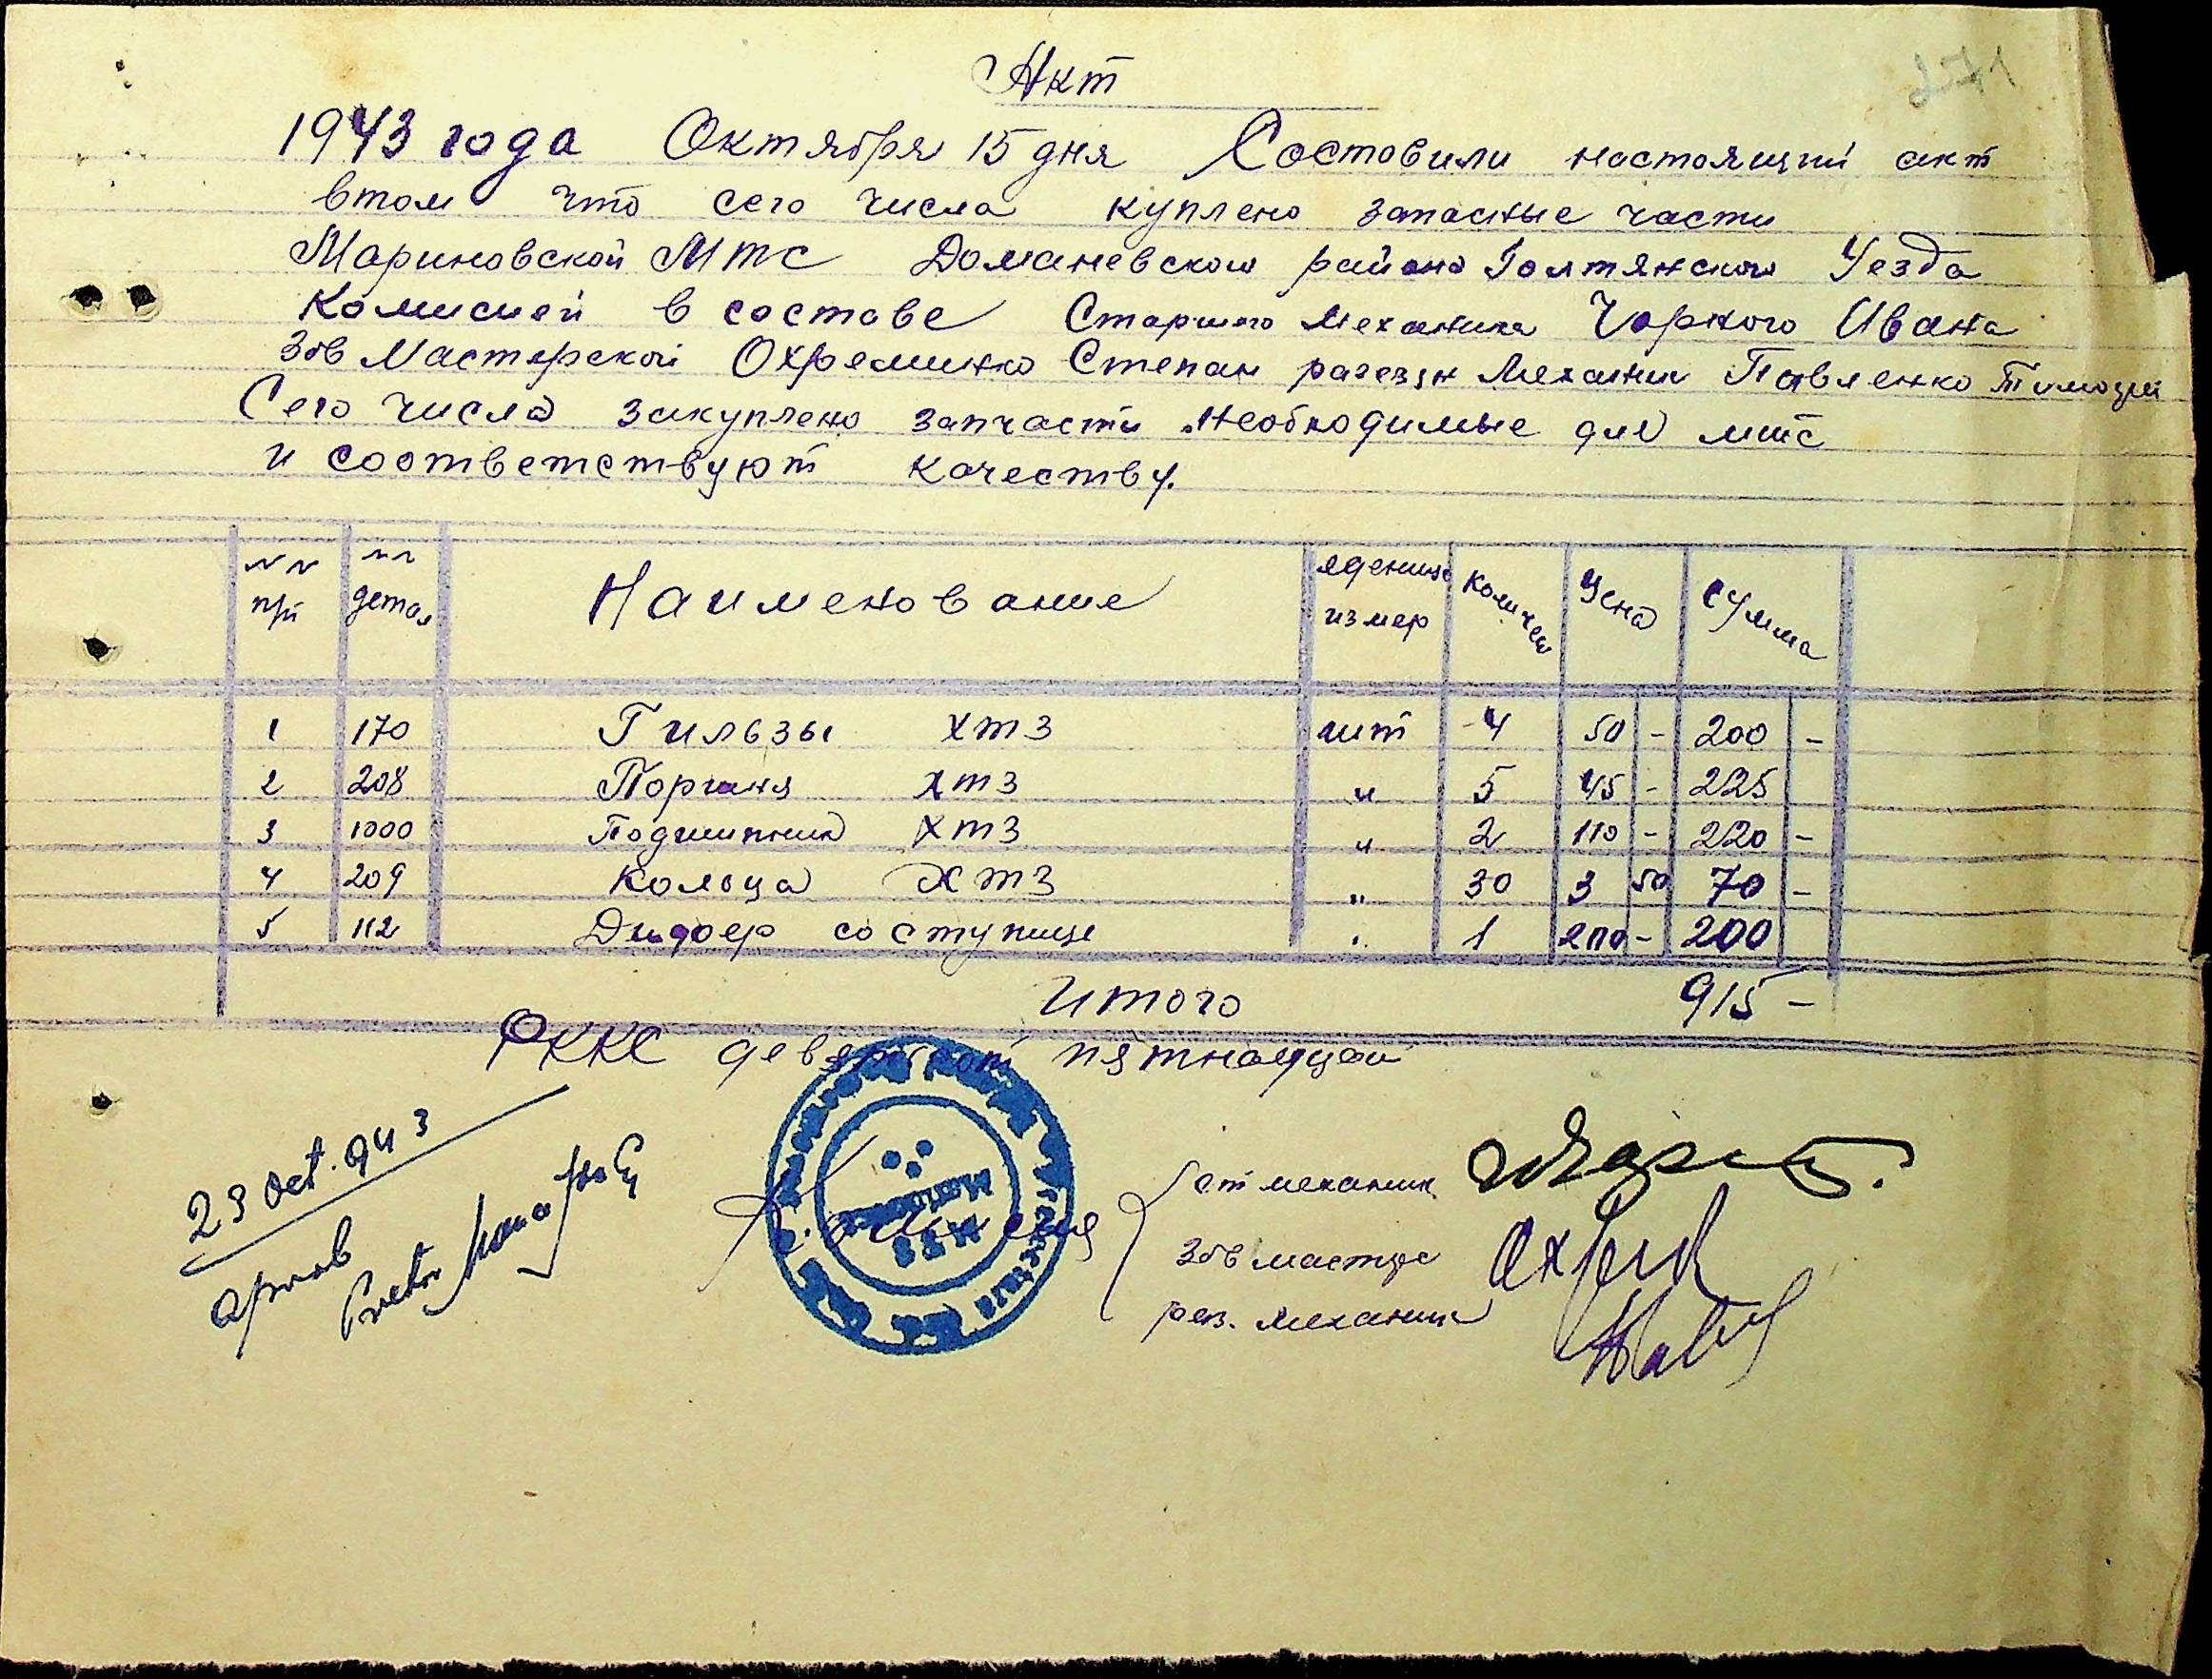 271
Акт
1943 года Октября 15 дня Составили настоящий акт
втом что сего числа куплено запасные части
Мариновской МТС Доманевского района Голтянского Уезда
Комисией в составе Старшего Механика Чоркого Ивана
Зав Мастерской Охременко Степан разезн Механик Павленко Тимофей
Сего числа закуплено запчасти необходимые для мтс
и соответствуют качеству.
№№ п/п №№ детал Наименование яденица измер Количес Цена Сумма
1 170 Гильзы ХТЗ шт 4 50 - 200 -
2 208 Поршня ХТЗ " 5 45 - 225
3 1000 Подшипник ХТЗ " 2 110 - 220 -
4 209 Кольца ХТЗ " 30 3 50 70 -
5 112 Дифер соступице " 1 200 - 200
Итого 915 -
РККС девятсот пятнаццат
23 Oct. 943
aprob
Pretor
ст механик
Зав мастерс
раз. механик